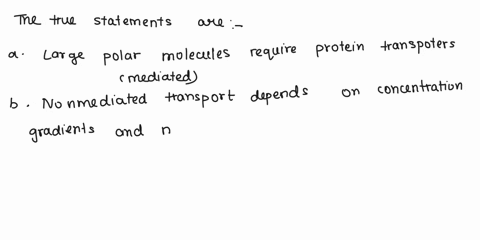 The true statements are :-
a. Large polar molecules require protein transpoters
(mediated)
b. Nonmediated transport depends on concentration
gradients and n